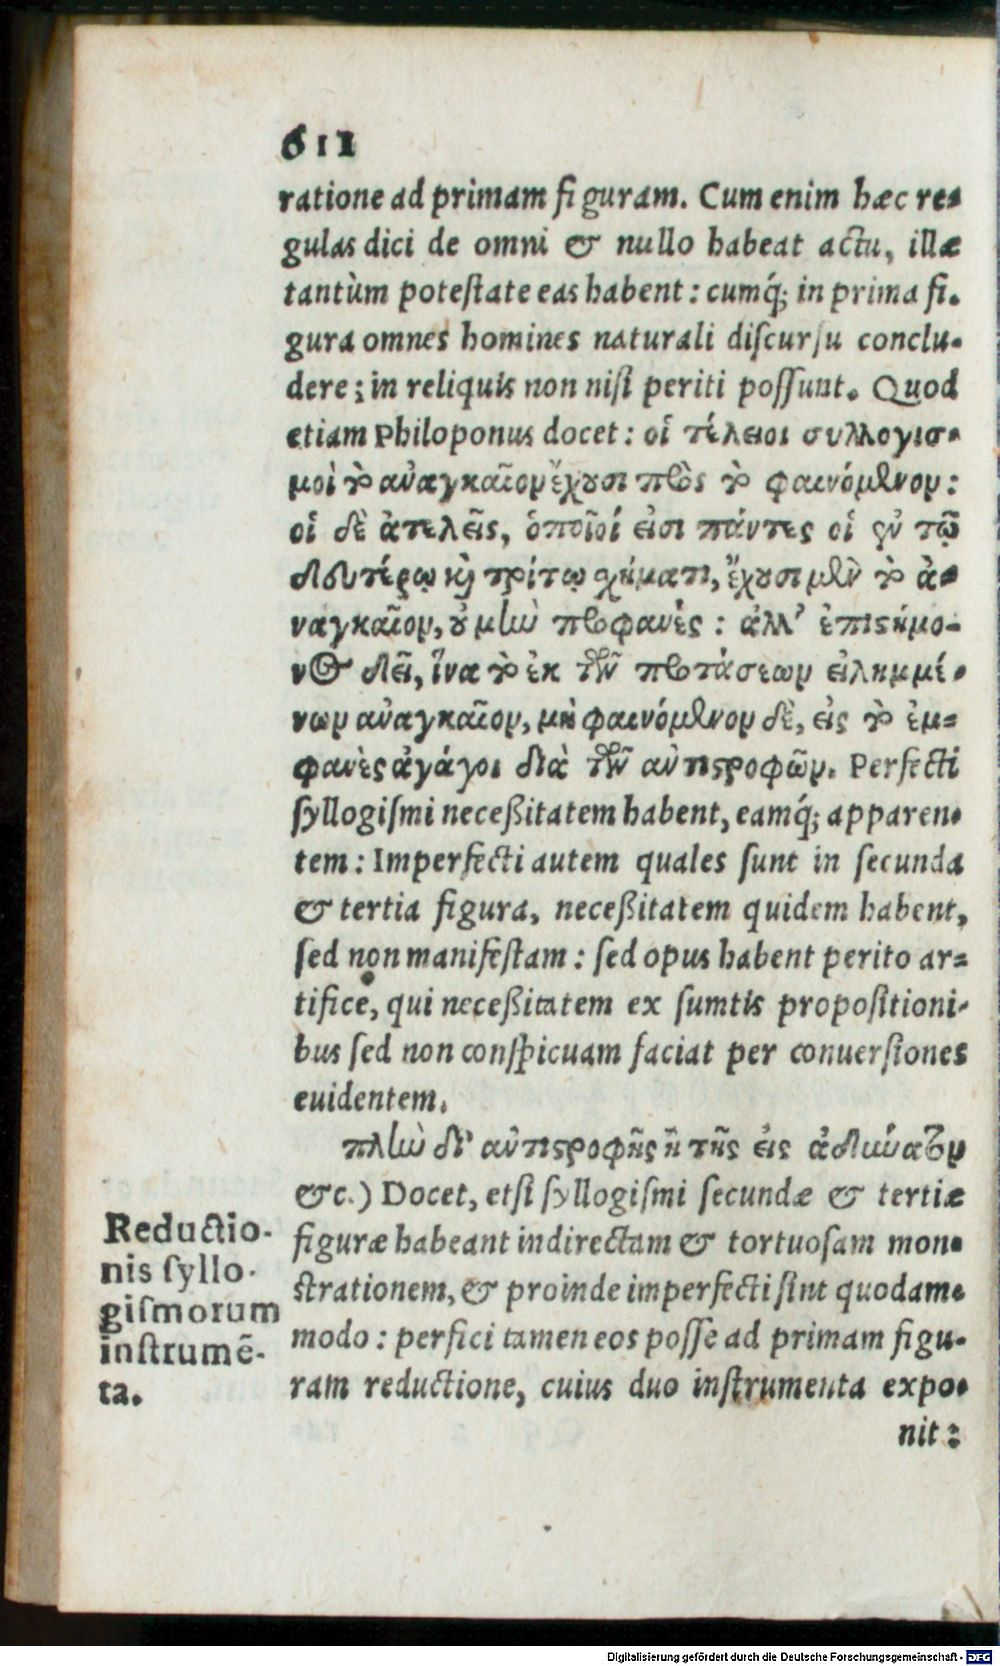 612
ratione ad primam figuram. Cum enim hæc re-
gulas dici de omni & nullo habeat actu, illæ
tantùm poteſtate eas habent: cumq́; in prima fi-
gura omnes homines naturali diſcurſu conclu-
dere; in reliquis non niſi periti poſſunt. Quod
etiam Philoponus docet: οἱ τέλειοι συλλογισ-
μοὶ τὸ ἀναγκαῖον ἔχουσι πρὸς τὸ φαινόμενον:
οἱ δὲ ἀτελεῖς, ὁποῖοί εἰσι πάντες οἱ ἐν τῷ
δευτέρῳ καὶ τρίτῳ σχήματι, ἔχουσι μὲν τὸ ἀ-
ναγκαῖον, οὐ μὴν προφανές: ἀλλ’ ἐπιστήμο-
νος δεῖ, ἵνα τὸ ἐκ τῶν προτάσεων εἰλημμέ-
νων ἀναγκαῖον, μὴ φαινόμενον δὲ, εἰς τὸ ἐμ-
φανὲς ἀγάγοι διὰ τῶν ἀντιστροφῶν. Perfecti
ſyllogiſmi neceßitatem habent, eamq́; apparen-
tem: Imperfecti autem quales ſunt in ſecunda
& tertia figura, neceßitatem quidem habent,
ſed non manifeſtam: ſed opus habent perito ar-
tifice, qui neceßitatem ex ſumtis propoſitioni-
bus ſed non conſpicuam faciat per conuerſiones
euidentem.
πλὴν δι’ ἀντιστροφῆς ἢ τῆς εἰς ἀδιύνατον
&c.) Docet, etſi ſyllogiſmi ſecundæ & tertiæ
figuræ habeant indirectam & tortuoſam mon-
ſtrationem, & proinde imperfecti ſint quodam-
modo: perfici tamen eos poſſe ad primam figu-
ram reductione, cuius duo inſtrumenta expo-
nit:
Reductio-
nis ſyllo-
giſmorum
inſtrumẽ-
ta.
Digitalisierung gefördert durch die Deutsche Forschungsgemeinschaft - DFG